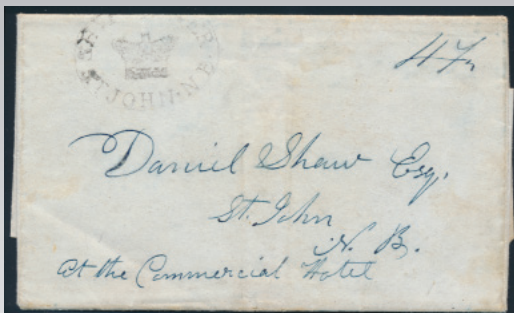 ST JOHN · N.B.
Daniel Shaw Esq.
St. John
N. B.
At the Commercial Hotel